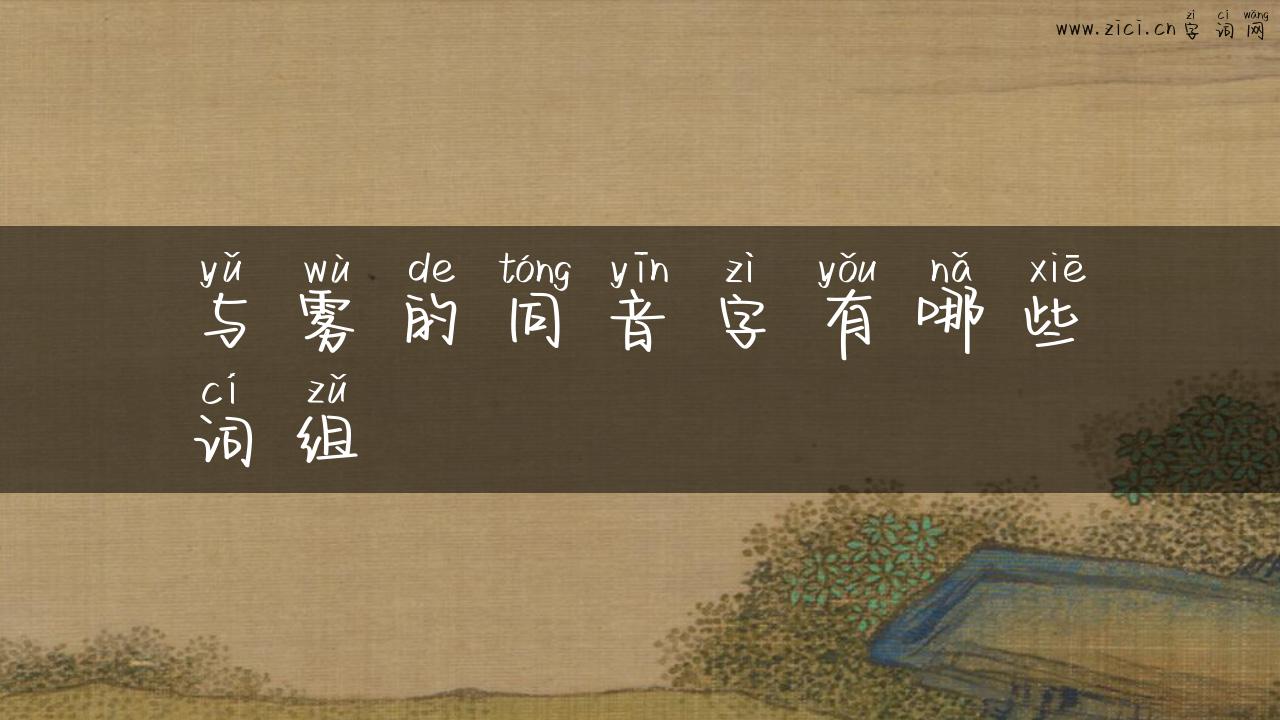 www.zici.cn 字词网
zì cí wǎng
yǔ wù de tóng yīn zì yǒu nǎ xiē
与雾的同音字有哪些
cí zǔ
词组